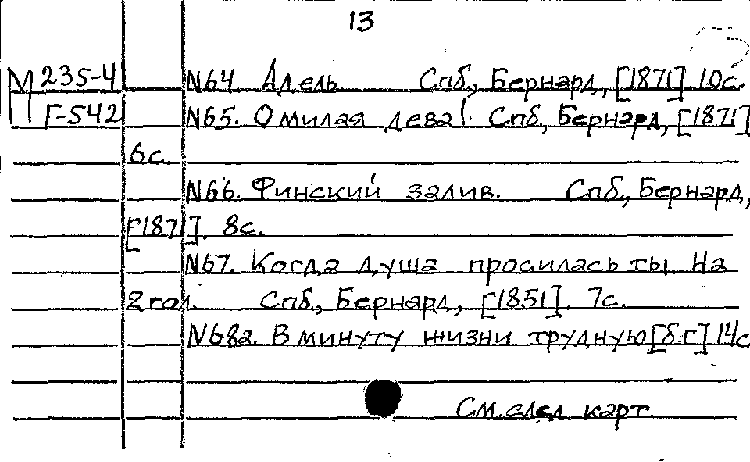 13
М 235-4 N64. Адель Спб., Бернард, [1871] 10с.
Г-542 N65. О милая дева! Спб., Бернард, [1871]
6с.
N66. Финский залив. Спб., Бернард,
[1871]. 8с.
N67. Когда душа просилась ты. На
2 гол. Спб., Бернард, [1851]. 7с.
N68а. В минуту жизни трудную [б.г.] 14с
См. след. карт.